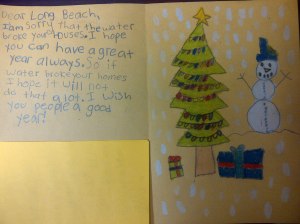 Dear Long Beach,
I am sorry that the water
broke your houses. I hope
you can have a great
year always. So if
water broke your homes
I hope it will not
do that a lot. I wish
you people a good
year!